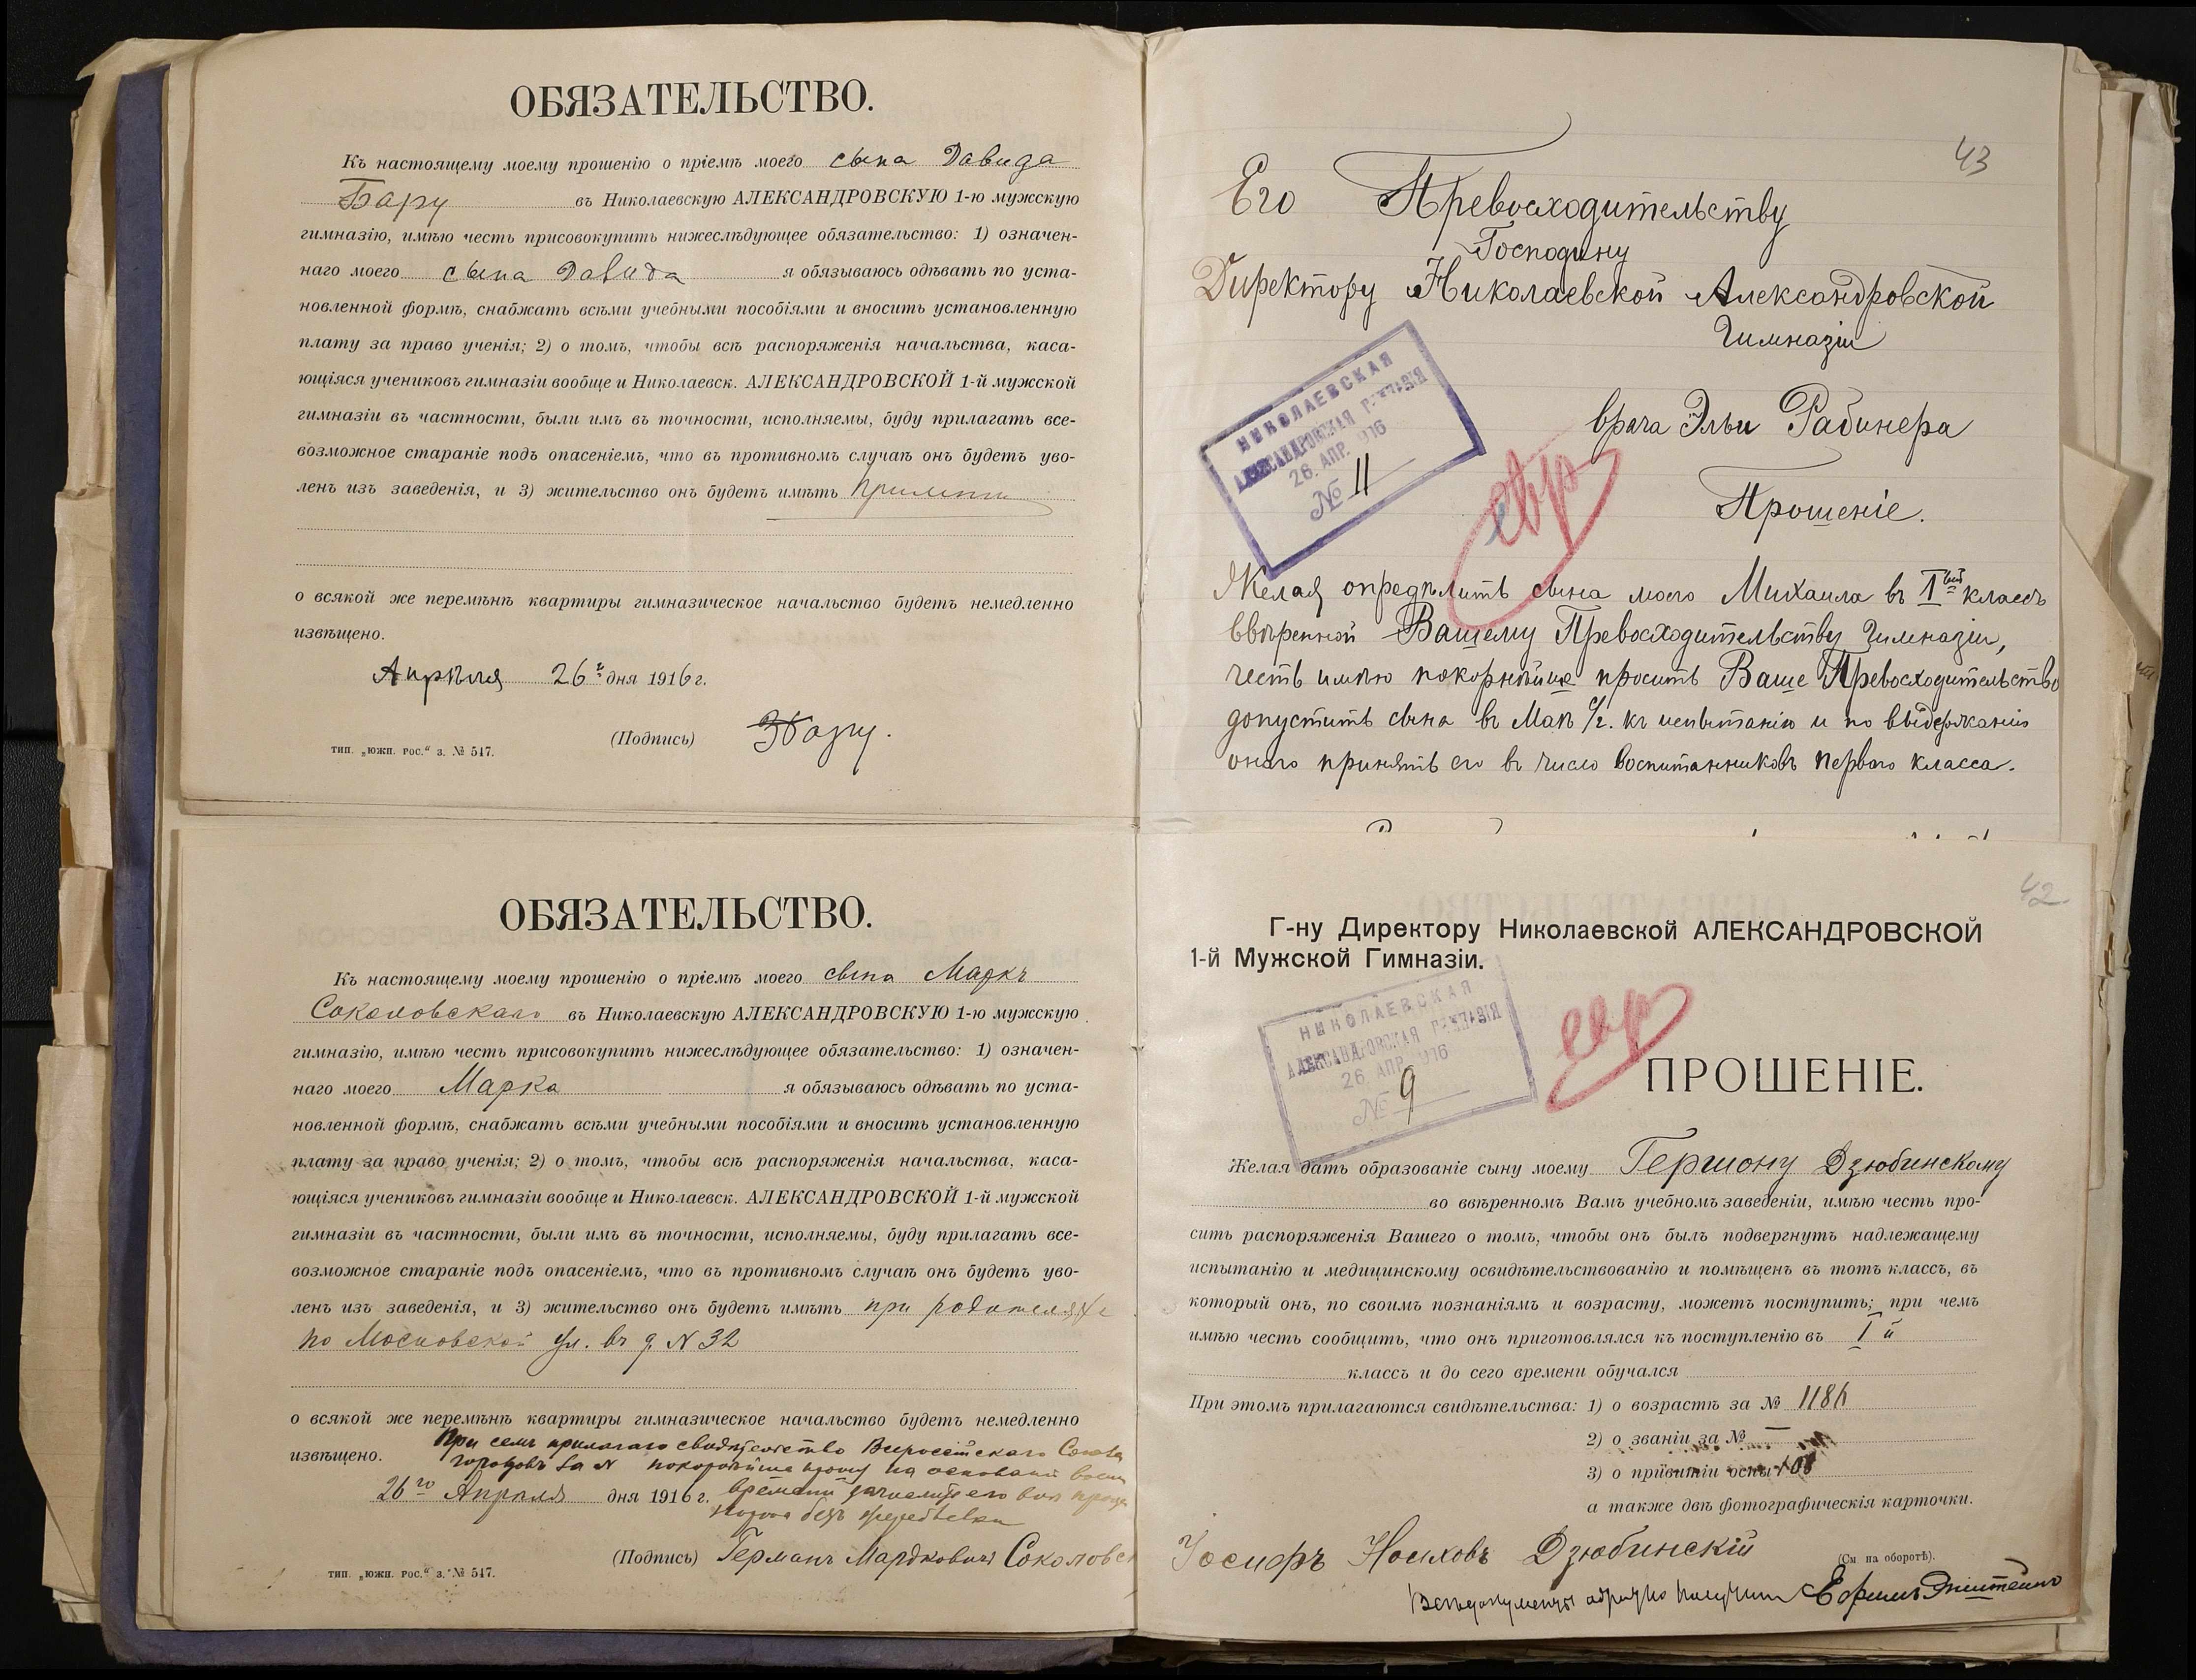 ОБЯЗАТЕЛЬСТВО.
Къ настоящему моему прошенію о пріемѣ моего сына Давида
Бару въ Николаевскую АЛЕКСАНДРОВСКУЮ 1-ю мужскую
гимназію, имѣю честь присовокупить нижеслѣдующее обязательство: 1) означен-
наго моего сына Давида я обязываюсь одѣвать по уста-
новленной формѣ, снабжать всѣми учебными пособіями и вносить установленную
плату за право ученія; 2) о томъ, чтобы всѣ распоряженія начальства, каса-
ющіяся учениковъ гимназіи вообще и Николаевск. АЛЕКСАНДРОВСКОЙ 1-й мужской
гимназіи въ частности, были имъ въ точности, исполняемы, буду прилагать все-
возможное стараніе подъ опасеніемъ, что въ противномъ случаѣ онъ будетъ уво-
ленъ изъ заведенія, и 3) жительство онъ будетъ имѣть
о всякой же перемѣнѣ квартиры гимназическое начальство будетъ немедленно
извѣщено.
Апрѣля 26го дня 1916 г.
(Подпись) ЗБару.
тип. „южн. рос.“ з. № 547.
43
Его Превосходительству
Господину
Директору Николаевской Александровской
Гимназіи
НИКОЛАЕВСКАЯ
АЛЕКСАНДРОВСКАЯ ГИМНАЗІЯ
26. АПР. 1916
№ 11
врача Эльи Рабинера
евр
Прошеніе.
Желая опредѣлить сына моего Михаила въ Iвый классъ
ввѣренной Вашему Превосходительству Гимназіи,
честь имѣю покорнѣйше просить Ваше Превосходительство
допустить сына въ Маѣ с/г. къ испытанію и по выдержаніи
онаго принять его въ число воспитанниковъ перваго класса.
ОБЯЗАТЕЛЬСТВО.
Къ настоящему моему прошенію о пріемѣ моего сына Маркъ
Соколовскаго въ Николаевскую АЛЕКСАНДРОВСКУЮ 1-ю мужскую
гимназію, имѣю честь присовокупить нижеслѣдующее обязательство: 1) означен-
наго моего Марка я обязываюсь одѣвать по уста-
новленной формѣ, снабжать всѣми учебными пособіями и вносить установленную
плату за право ученія; 2) о томъ, чтобы всѣ распоряженія начальства, каса-
ющіяся учениковъ гимназіи вообще и Николаевск. АЛЕКСАНДРОВСКОЙ 1-й мужской
гимназіи въ частности, были имъ въ точности, исполняемы, буду прилагать все-
возможное стараніе подъ опасеніемъ, что въ противномъ случаѣ онъ будетъ уво-
ленъ изъ заведенія, и 3) жительство онъ будетъ имѣть при родителяхъ
по Московской ул. въ д. N 32
о всякой же перемѣнѣ квартиры гимназическое начальство будетъ немедленно
извѣщено. При семъ прилагаю свидѣтельство Всероссійскаго Союза
городовъ за N покорнѣйше прошу на основаніи
26го Апрѣля дня 1916 г. времени зачислить его внѣ
безъ жеребьевки
(Подпись) Германъ Мардковичъ Соколовск
тип. „южн. рос.“ з. № 547.
42
Г-ну Директору Николаевской АЛЕКСАНДРОВСКОЙ
1-й Мужской Гимназіи.
НИКОЛАЕВСКАЯ
АЛЕКСАНДРОВСКАЯ ГИМНАЗІЯ
26. АПР. 1916
№ 9
евр
ПРОШЕНІЕ.
Желая дать образованіе сыну моему Гершону Дзюбинскому
во ввѣренномъ Вамъ учебномъ заведеніи, имѣю честь про-
сить распоряженія Вашего о томъ, чтобы онъ былъ подвергнутъ надлежащему
испытанію и медицинскому освидѣтельствованію и помѣщенъ въ тотъ классъ, въ
который онъ, по своимъ познаніямъ и возрасту, можетъ поступить; при чемъ
имѣю честь сообщить, что онъ приготовлялся къ поступленію въ I й
классъ и до сего времени обучался
При этомъ прилагаются свидѣтельства: 1) о возрастѣ за №
2) о званіи за № —
3) о привитіи оспы 108
а также двѣ фотографическія карточки.
Іосифъ Носиховъ Дзюбинскій
(См. на оборотѣ).
Всѣ документы обратно получилъ Ефимъ Эпштейнъ